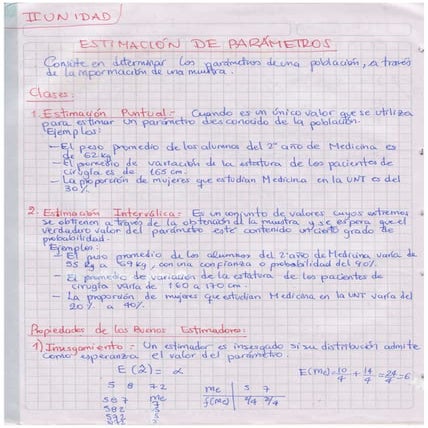 II UNIDAD
ESTIMACIÓN DE PARÁMETROS
Consiste en determinar los parámetros de una población, a través
de la información de una muestra.
Clases:
1. Estimación Puntual:- Cuando es un único valor que se utiliza
para estimar un parámetro desconocido de la población.
Ejemplos:
- El peso promedio de los alumnos del 2º año de Medicina es
de 62 kg.
- El promedio de variación de la estatura de los pacientes de
cirugía es de 165 cm.
- La proporción de mujeres que estudian Medicina en la UNT es del
30%.
2. Estimación Interválica:- Es un conjunto de valores cuyos extremos
se obtienen a través de la obtención de la muestra y se espera que el
verdadero valor del parámetro esté contenido un cierto grado de
probabilidad.
Ejemplos:
- El peso promedio de los alumnos del 2º año de Medicina varía de
55 kg a 69 kg, con una confianza o probabilidad del 90%.
- El promedio de variación de la estatura de los pacientes de
cirugía varía de 160 a 170 cm.
- La proporción de mujeres que estudian Medicina en la UNT varía del
20% a 40%.
Propiedades de los Buenos Estimadores:
1) Insesgamiento:- Un estimador es insesgado si su distribución admite
como esperanza el valor del parámetro.
E (α̂) = α
5 8 7 2
5 8 7
5 8 2
5 9 2
me
me 5 7
f(me) 2/4 2/4
E(me) = 10/4 + 14/4 = 24/4 = 6